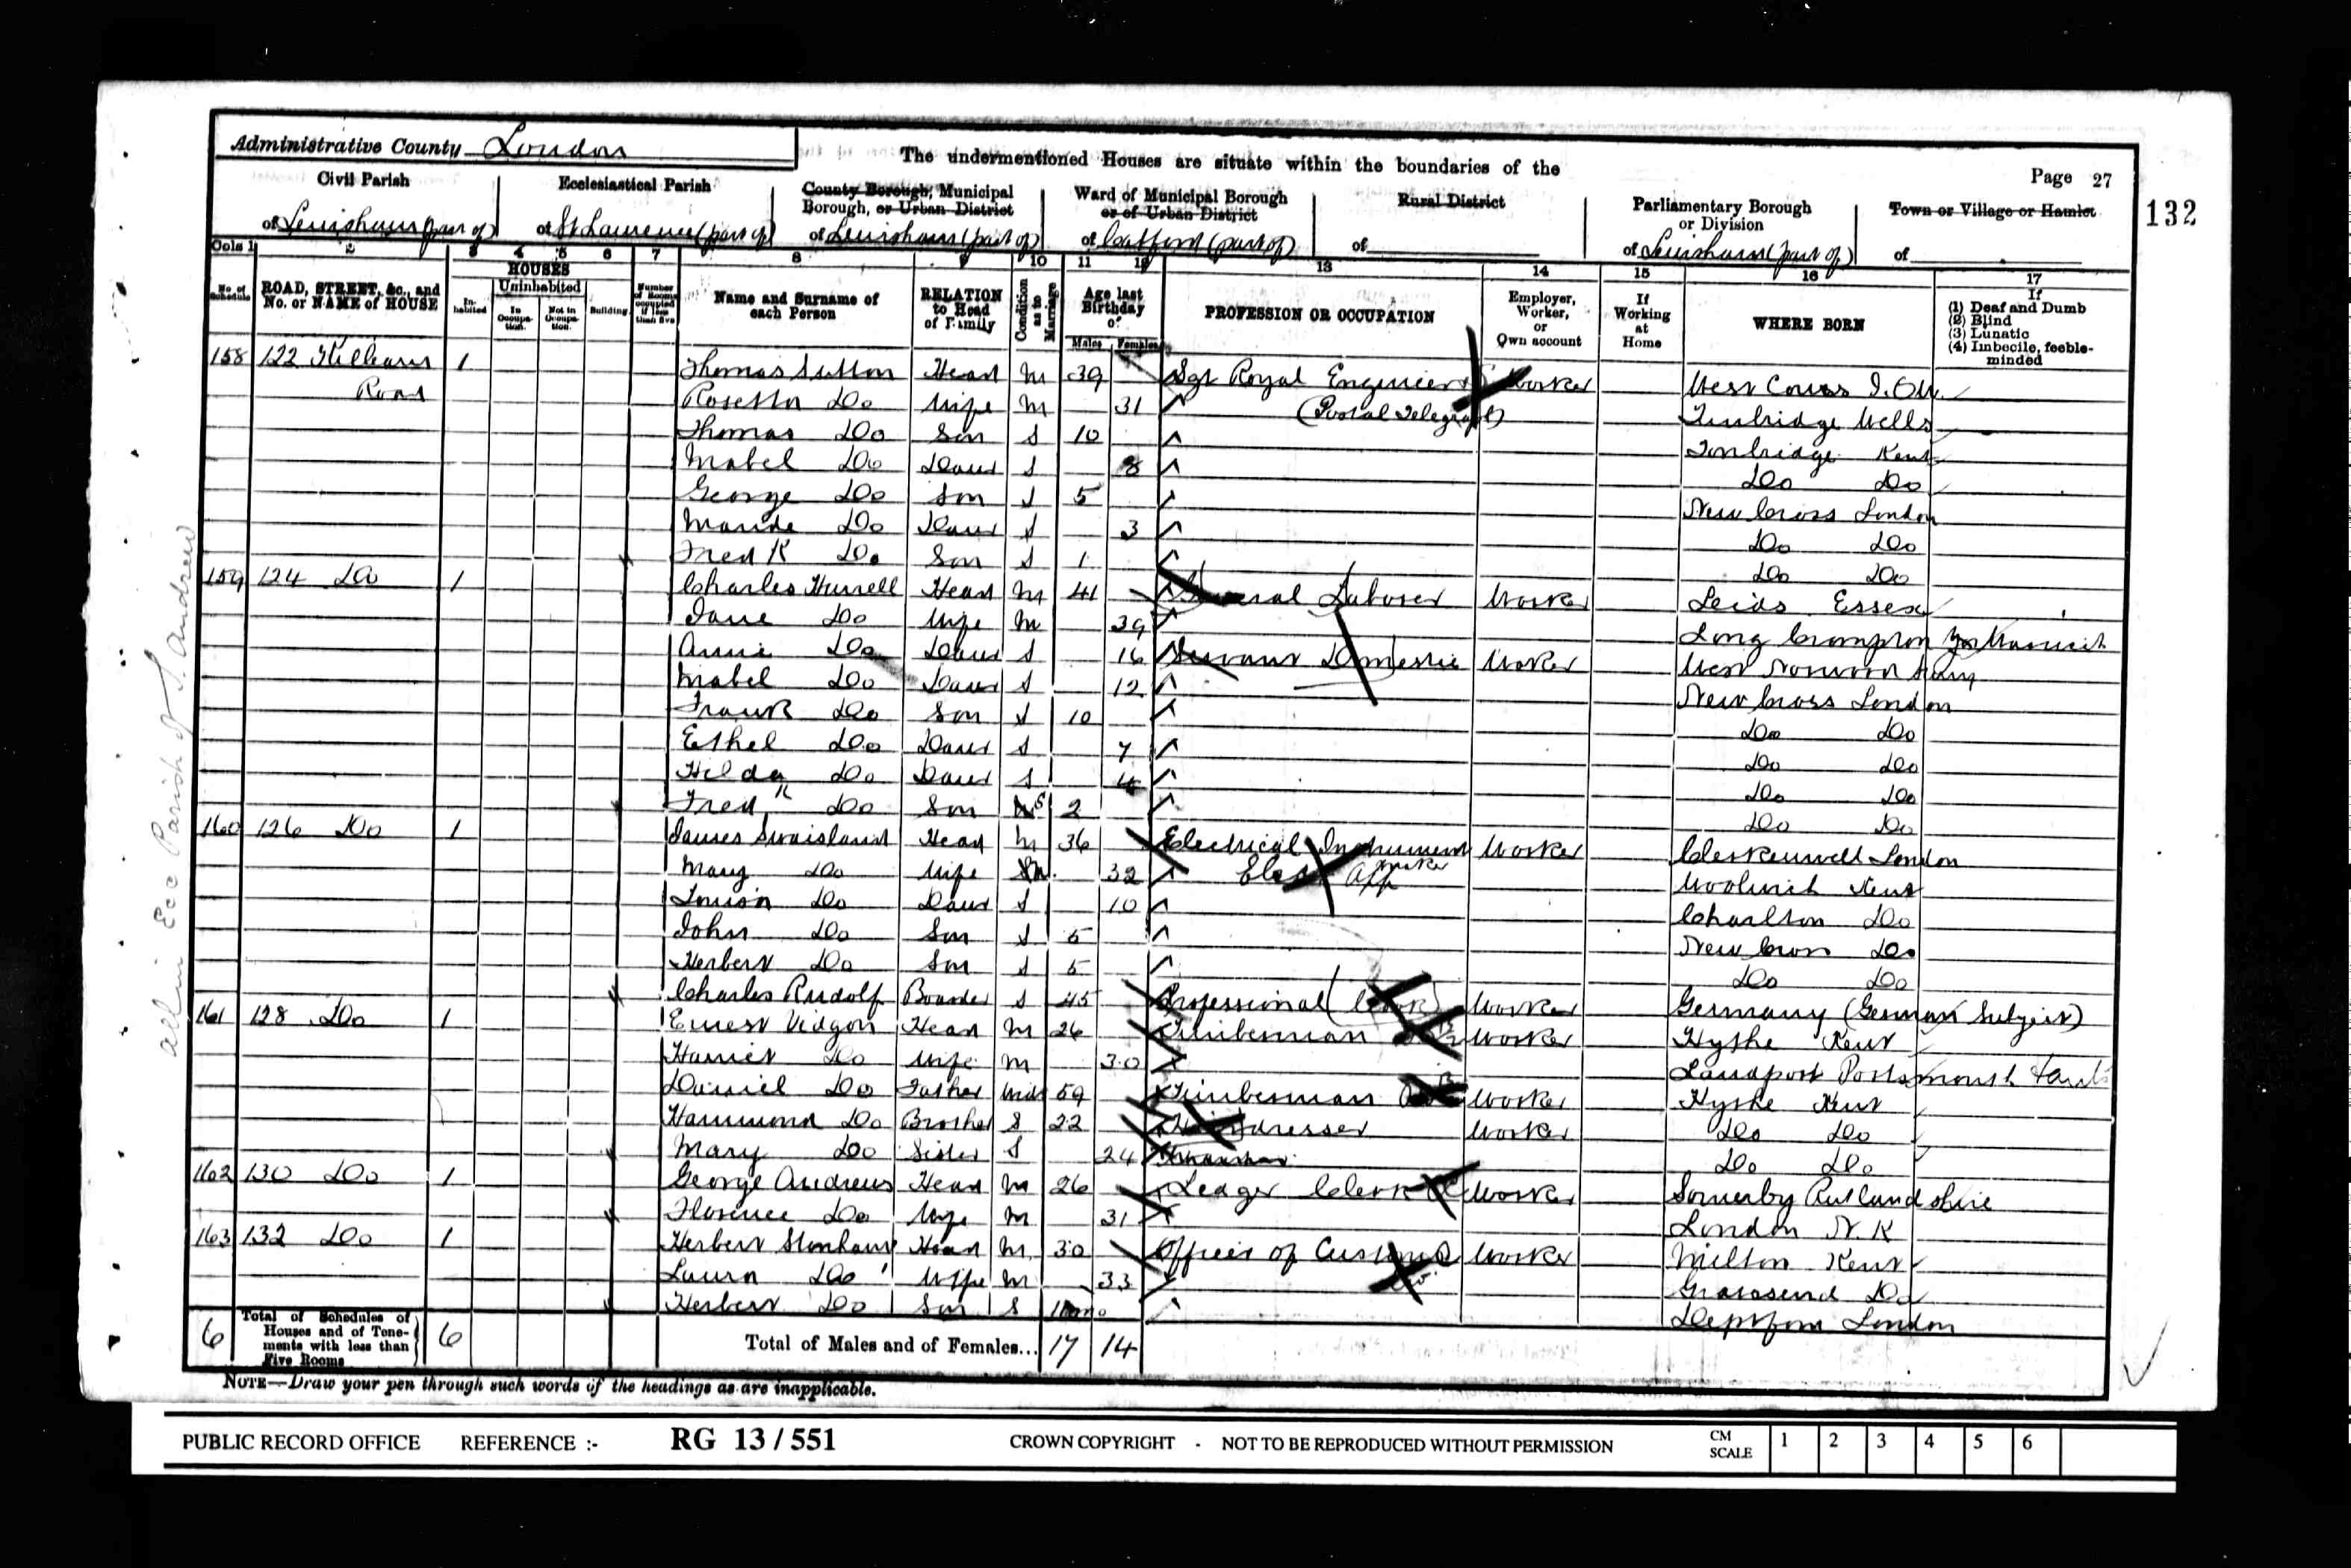 Administrative County London
The undermentioned Houses are situate within the boundaries of the
Page 27
132
Civil Parish
of Lewisham (part of)
Ecclesiastical Parish
of St Laurence (part of)
County Borough, Municipal Borough, or Urban District
of Lewisham (part of)
Ward of Municipal Borough or of Urban District
of Catford (part of)
Rural District
of
Parliamentary Borough or Division
of Lewisham (part of)
Town or Village or Hamlet
of
Cols 1 2 3 4 5 6 7 8 9 10 11 12 13 14 15 16 17
No. of Schedule
ROAD, STREET, &c., and No. or NAME of HOUSE
HOUSES
Inhabited
Uninhabited
In Occupation.
Not in Occupation.
Building
Number of Rooms occupied if less than five
Name and Surname of each Person
RELATION to Head of Family
Condition as to Marriage
Age last Birthday of
Males Females
PROFESSION OR OCCUPATION
Employer, Worker, or Own account
If Working at Home
WHERE BORN
If
(1) Deaf and Dumb
(2) Blind
(3) Lunatic
(4) Imbecile, feeble-minded
158 122 Road 1 Thomas Sutton Head M 39 Sgt Royal Engineers (Postal Telegraph) Worker West Cowes I.O.W.
Rosetta Do Wife M 31 Tunbridge Wells
Thomas Do Son S 10 Tonbridge Kent
Mabel Do Daur S 8 Do Do
George Do Son S 5 New Cross London
Maude Do Daur S 3 Do Do
Fredk Do Son S 1 Do Do
159 124 Do 1 Charles Hurrell Head M 41 General Laborer Worker Essex
Jane Do Wife M 39 Long Crompton
Annie Do Daur S 16 Servant Domestic Worker West Norwood
Mabel Do Daur S 12 New Cross London
Frank Do Son S 10 Do Do
Ethel Do Daur S 7 Do Do
Hilda Do Daur S 4 Do Do
Fredk Do Son S 2 Do Do
160 126 Do 1 James Swaisland Head M 36 Electrical Instrument Maker Elec App Worker Clerkenwell London
Mary Do Wife M 32 Woolwich Kent
Louisa Do Daur S 10 Charlton Do
John Do Son S 5 New Cross Do
Herbert Do Son S 5 Do Do
Charles Rudolf Boarder S 45 Professional Worker Germany (German Subject)
161 128 Do 1 Ernest Vidgon Head M 26 Timberman Worker Hythe Kent
Harriet Do Wife M 30 Landport Portsmouth Hants
Daniel Do Father Wid 59 Timberman Worker Hythe Kent
Hammond Do Brother S 22 Hairdresser Worker Do Do
Mary Do Sister S 24 Do Do
162 130 Do 1 George Andrews Head M 26 Ledger Clerk Worker Somerby Rutlandshire
Florence Do Wife M 31 London N.K
163 132 Do 1 Herbert Head M 30 Officer of Customs Worker Milton Kent
Laura Do Wife M 33 Gravesend Do
Herbert Do Son S 10mo Deptford London
6 Total of Schedules of Houses and of Tenements with less than Five Rooms 6 Total of Males and of Females... 17 14
NOTE—Draw your pen through such words of the headings as are inapplicable.
all in Ecc Parish of S. Andrew
PUBLIC RECORD OFFICE REFERENCE :- RG 13 / 551 CROWN COPYRIGHT - NOT TO BE REPRODUCED WITHOUT PERMISSION CM SCALE 1 2 3 4 5 6